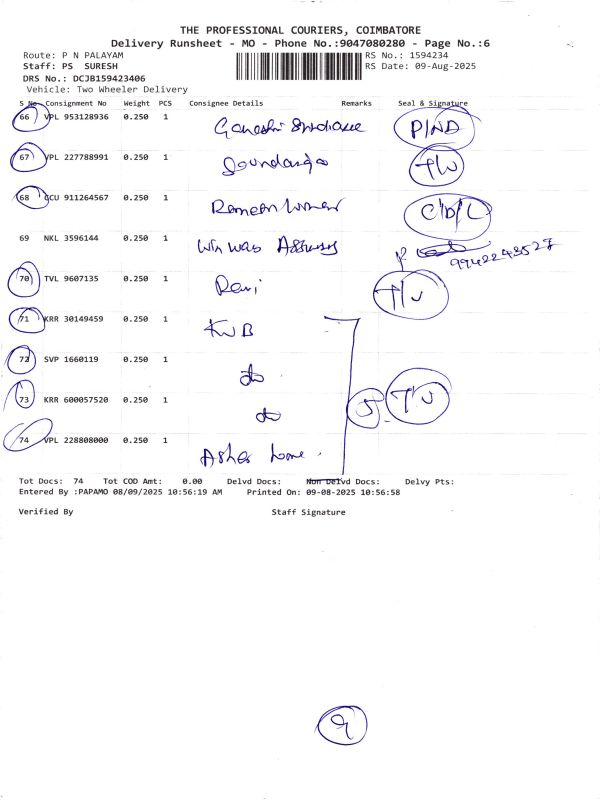 THE PROFESSIONAL COURIERS, COIMBATORE
Delivery Runsheet - MO - Phone No.:9047080280 - Page No.:6
Route: P N PALAYAM RS No.: 1594234
Staff: PS SURESH RS Date: 09-Aug-2025
DRS No.: DCJB159423406
Vehicle: Two Wheeler Delivery
S No Consignment No Weight PCS Consignee Details Remarks Seal & Signature
66 VPL 953128936 0.250 1 Ganesh P/ND
67 VPL 227788991 0.250 1 T/U
68 GCU 911264567 0.250 1 C/D/L
69 NKL 3596144 0.250 1 Win Was
9942243527
70 TVL 9607135 0.250 1 Ravi T/U
71 KRR 30149459 0.250 1 KVB
72 SVP 1660119 0.250 1 do
73 KRR 600057520 0.250 1 do 5 T/U
74 VPL 228808000 0.250 1 Asher home
Tot Docs: 74 Tot COD Amt: 0.00 Delvd Docs: Non Delvd Docs: Delvy Pts:
Entered By :PAPAMO 08/09/2025 10:56:19 AM Printed On: 09-08-2025 10:56:58
Verified By Staff Signature
9